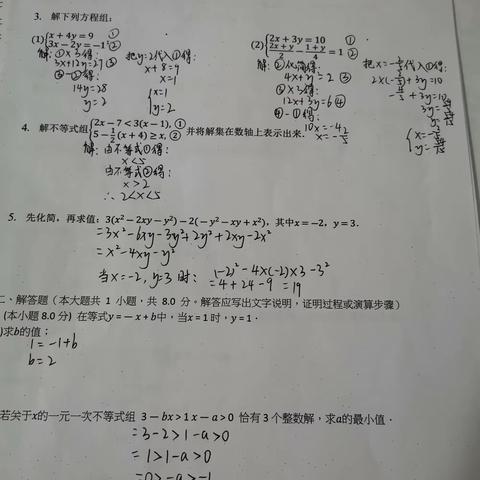 3. 解下列方程组:
(1){x + 4y = 9 ①
3x − 2y = −1 ②
解: ①×3得:
3x+12y=27 ③
③-②得:
14y=28
y=2
把y=2代入①得:
x+8=9
x=1
{x=1
y=2
(2){2x + 3y = 10 ①
(2x+y)/2 − (1+y)/4 = 1 ②
解: ②化简得:
4x+y=2 ③
③×3得:
12x+3y=6 ④
④-①得:
10x=-4
x=-2/5
把x=-2/5代入①得:
2×(-2/5)+3y=10
-4/5+3y=10
4. 解不等式组{2x − 7 < 3(x − 1), ①
5 − 1/2(x + 4) ≥ x, ② 并将解集在数轴上表示出来.
解: 由不等式①得:
x<5
由不等式②得:
x>2
∴2<x<5
5. 先化简，再求值：3(x² − 2xy − y²) − 2(−y² − xy + x²)，其中x = −2，y = 3.
=3x²-6xy-3y²+2y²+2xy-2x²
=x²-4xy-y²
当x=-2, y=3时: (-2)²-4×(-2)×3-3²
=4+24-9 =19
二、解答题（本大题共 1 小题，共 8.0 分。解答应写出文字说明，证明过程或演算步骤）
(本小题8.0 分) 在等式y = − x + b中，当x = 1 时，y = 1.
)求b的值；
1=-1+b
b=2
若关于x的一元一次不等式组 3 − bx > 1 x − a > 0 恰有 3 个整数解，求a的最小值.
=3-2>1-a>0
=1>1-a>0
=0>-a>-1